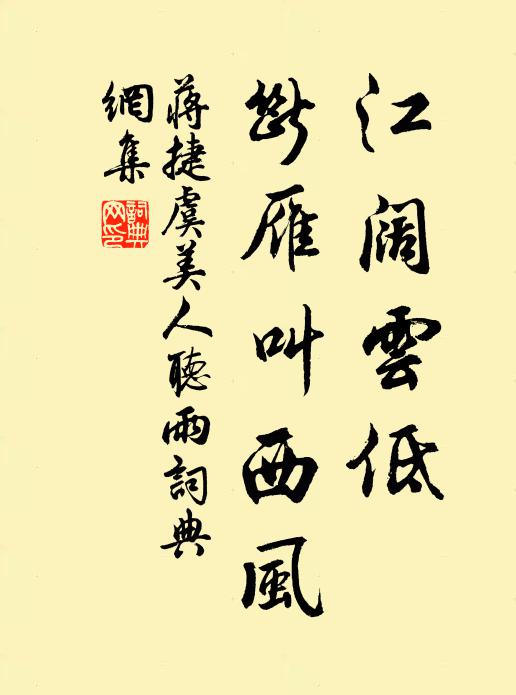 江闊雲低
斷雁叫西風
蔣捷虞美人聽雨詞典
網集
詞典網印